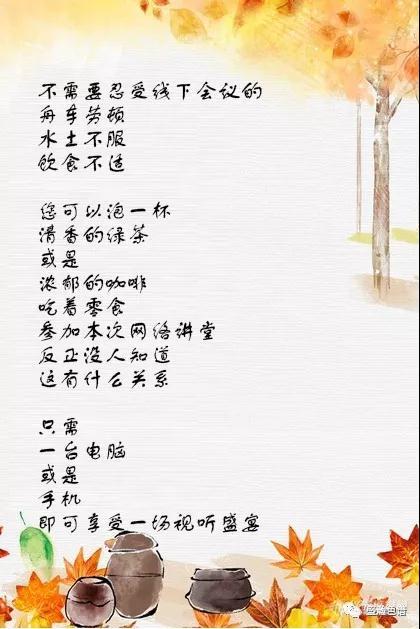 不需要忍受线下会议的
舟车劳顿
水土不服
饮食不适
您可以泡一杯
清香的绿茶
或是
浓郁的咖啡
吃着零食
参加本次网络讲堂
反正没人知道
这有什么关系
只需
一台电脑
或是
手机
即可享受一场视听盛宴